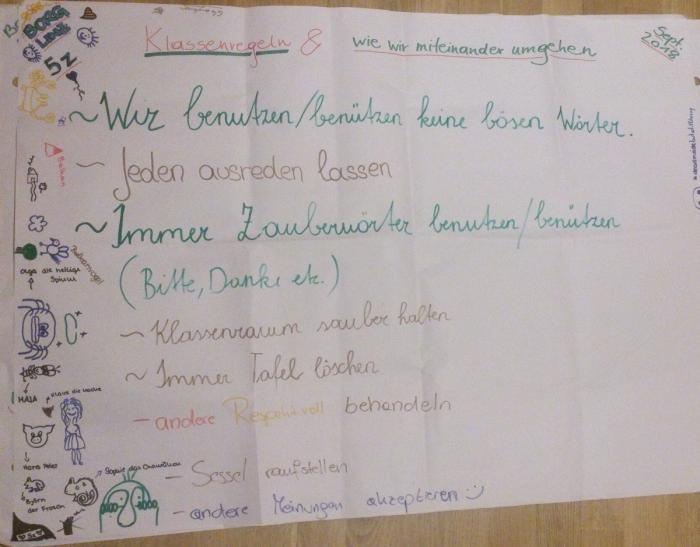 BORG
LINZ
5z
Klassenregeln & wie wir miteinander umgehen
Sept. 2018
~ Wir benutzen/benützen keine bösen Wörter.
~ Jeden ausreden lassen
~ Immer Zauberwörter benutzen/benützen
(Bitte, Danke etc.)
~ Klassenraum sauber halten
~ Immer Tafel löschen
- andere Respektvoll behandeln
- Sessel raufstellen
- andere Meinungen akzeptieren :)
Olga die heilige
Spinne
MAJA
Björn
der Frosch